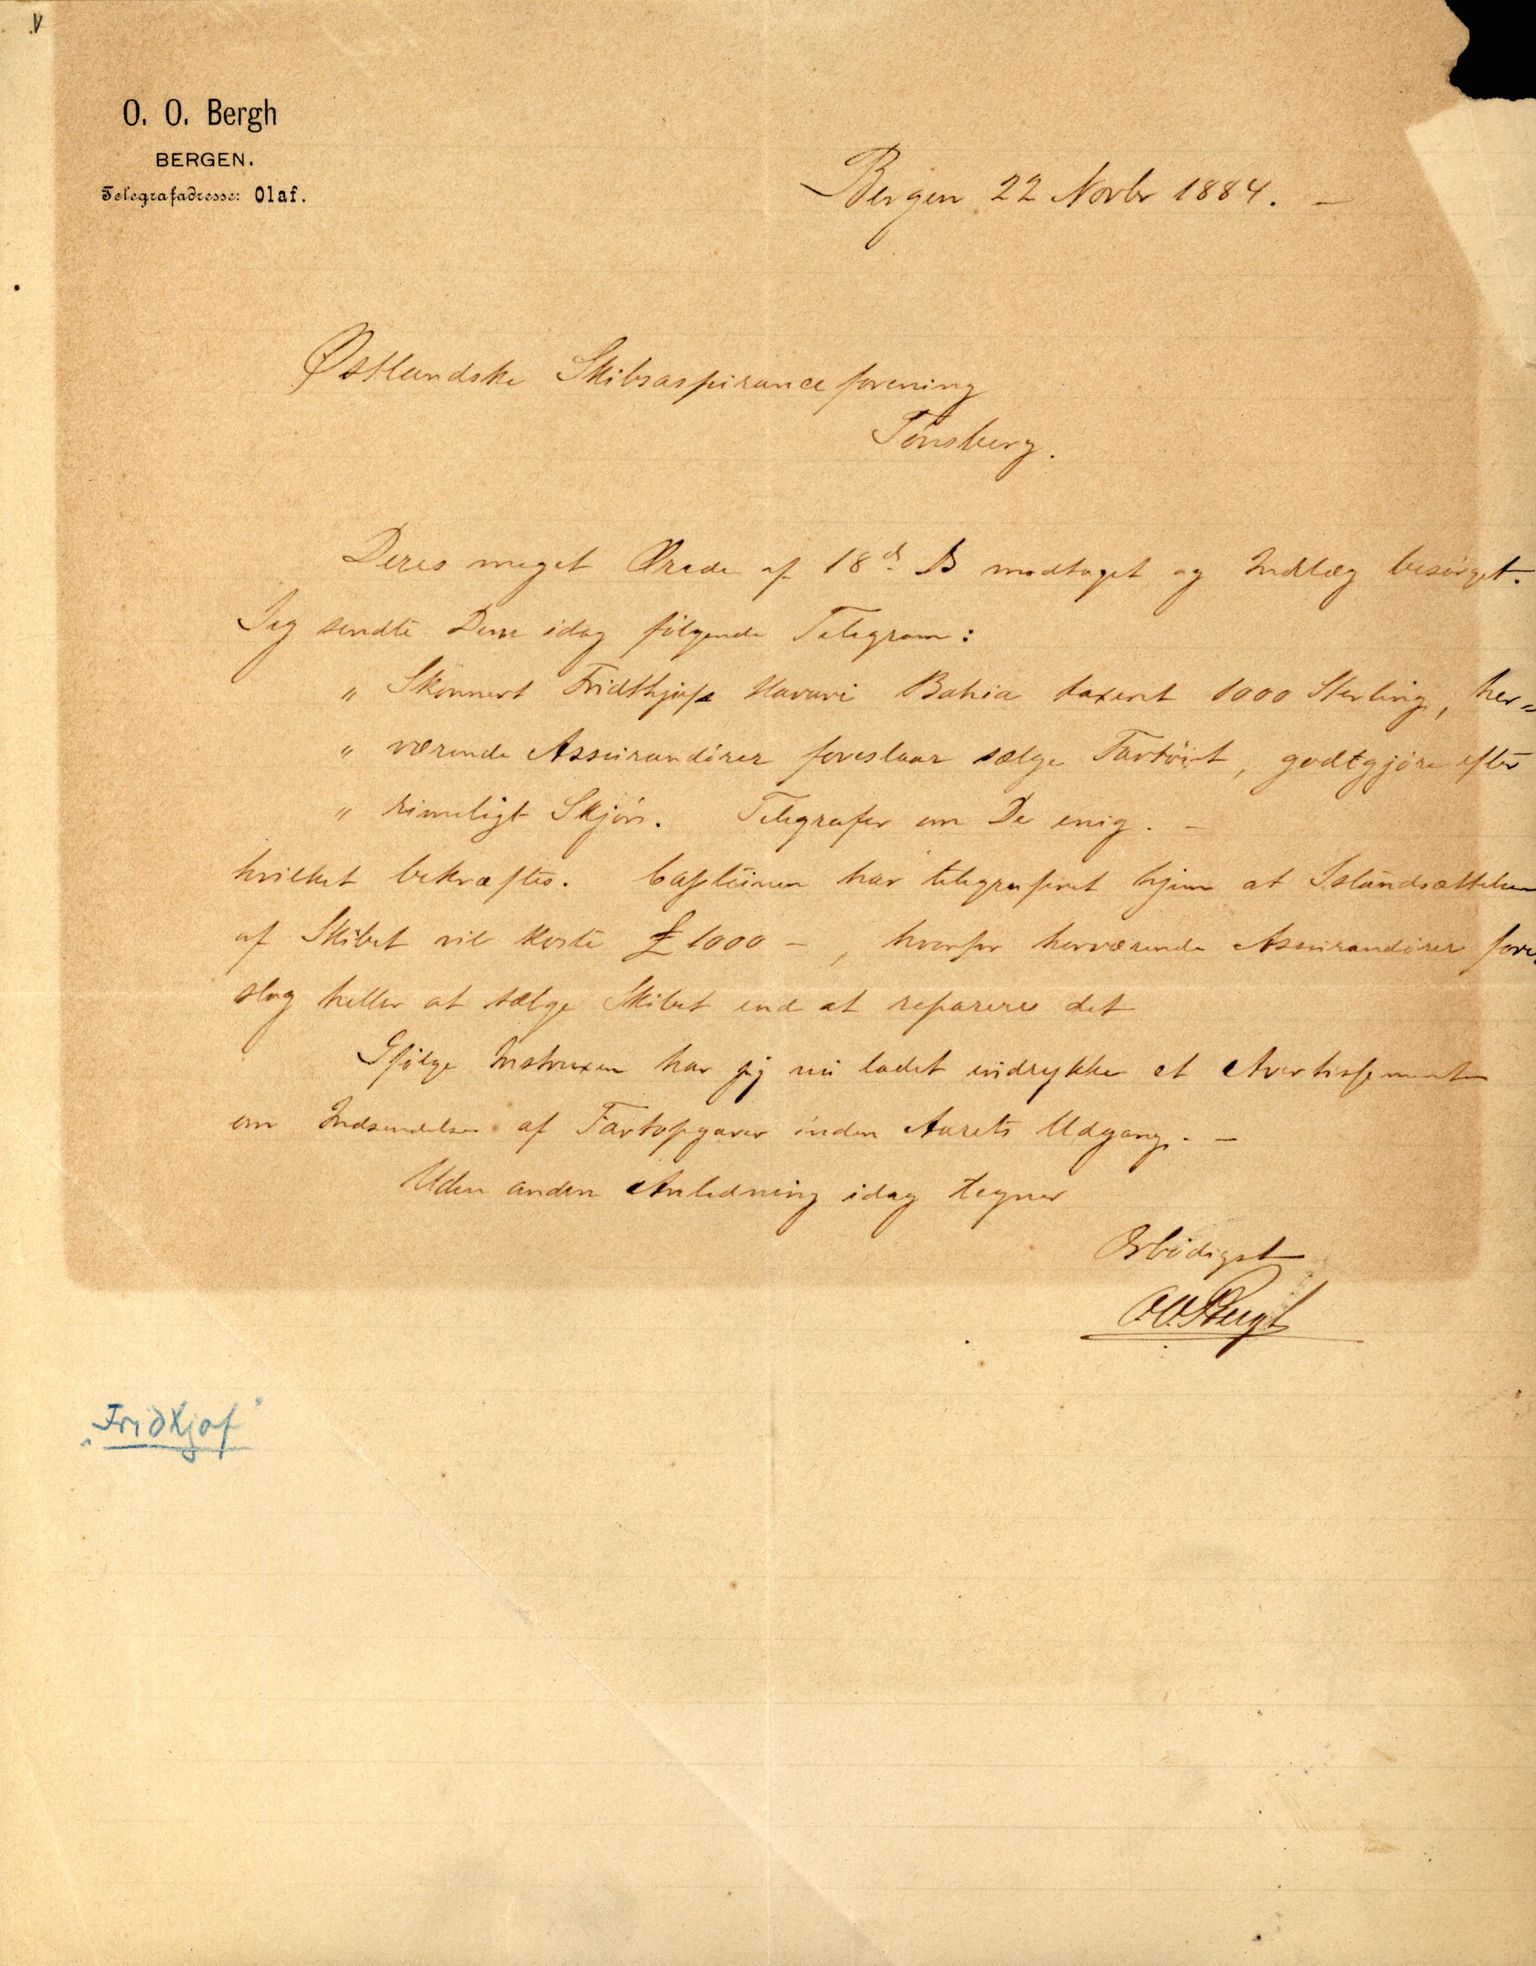 O. O. Bergh
BERGEN.
Telegrafadresse: Olaf.
Bergen 22 Novbr 1884. –
Østlandske Skibsassuranceforening
Tönsberg.
Deres meget Ærede af 18d. ds modtaget og Indlæg besörget.
Jeg sendte Dem idag fölgende Telegram:
" Skonnert Fridthjofs Havari Bahia taxeret 1000 Sterling, her=
" værende Assurandörer foreslaar sælge Fartöiet, godtgjöre efter
" rimeligt Skjön. Telegrafer om De enig. –
hvilket bekræftes. Capteinen har telegraferet hjem at Istandsættelsen
af Skibet vil koste £ 1000 –, hvorfor herværende Assurandörer fore=
slog heller at sælge Skibet end at reparere det
Ifölge Instruxen har jeg nu ladet indrykke et Avertissement
om Indsendelse af Fartopgaver inden Aarets Udgang. –
Uden anden Anledning idag tegner
Ærbödigst
O.O. Bergh
"Fridtjof"